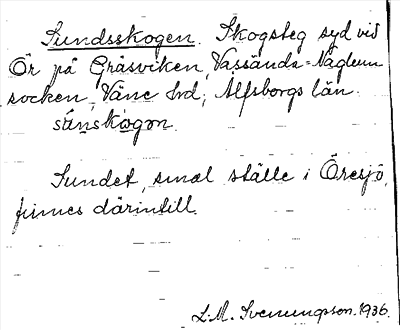 Sundsskogen. Skogsteg syd vid
Ör på Gråsviken, Vassända-Naglum
socken, Väne hrd, Älfsborgs län.
sånskogon.
Sundet, smal ställe i Öresjö,
finnes därintill.
S. M. Svenungsson. 1936.